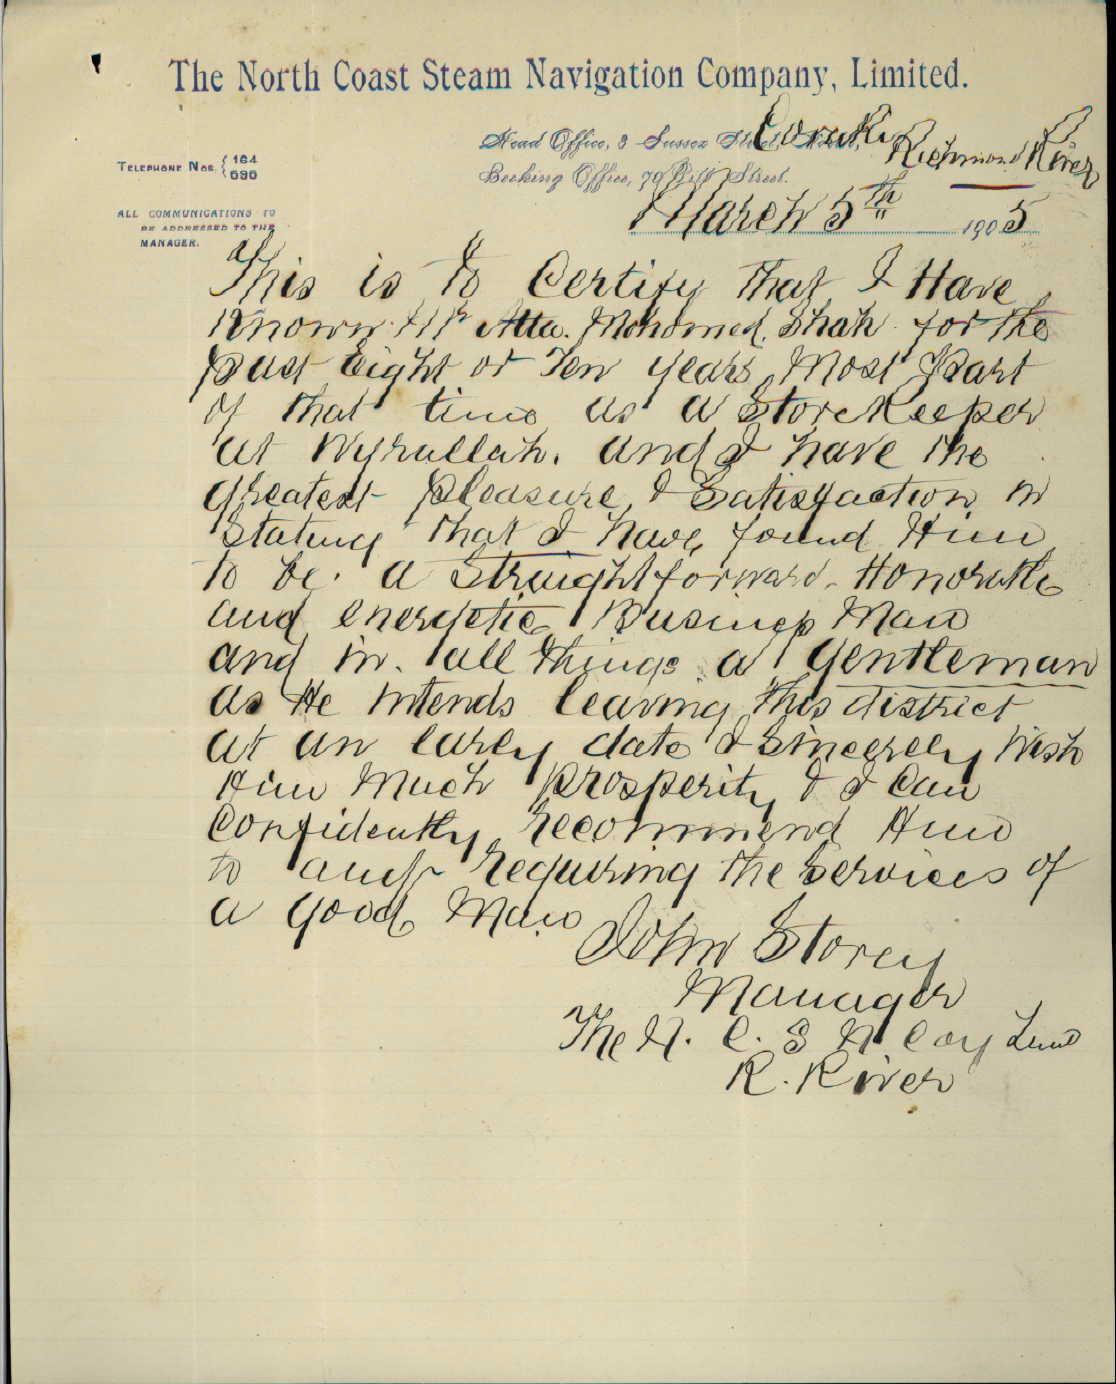 The North Coast Steam Navigation Company, Limited.
Head Office, 3 Sussex Street,
Coraki
Richmond River
TELEPHONE NOS. { 164
690
Booking Office, 70 Pitt Street.
March 5th 1905
ALL COMMUNICATIONS TO
BE ADDRESSED TO THE
MANAGER.
This is to Certify that I Have
Known Mr Atta. Mohomed. Shah for the
past Eight or Ten years, Most Part
of that time as a StoreKeeper
at Wyrallah. and I have the
greatest pleasure & Satisfaction in
Stating that I have found Him
to be. a Straightforward. Honorable
and energetic Business Man
and in. all things a gentleman
as He intends leaving this district
at an early date I Sincerely Wish
Him Much prosperity & I Can
Confidently recommend Him
to any requiring the Services of
a good Man
John Storey
Manager
The N. C. S N Coy
R. River